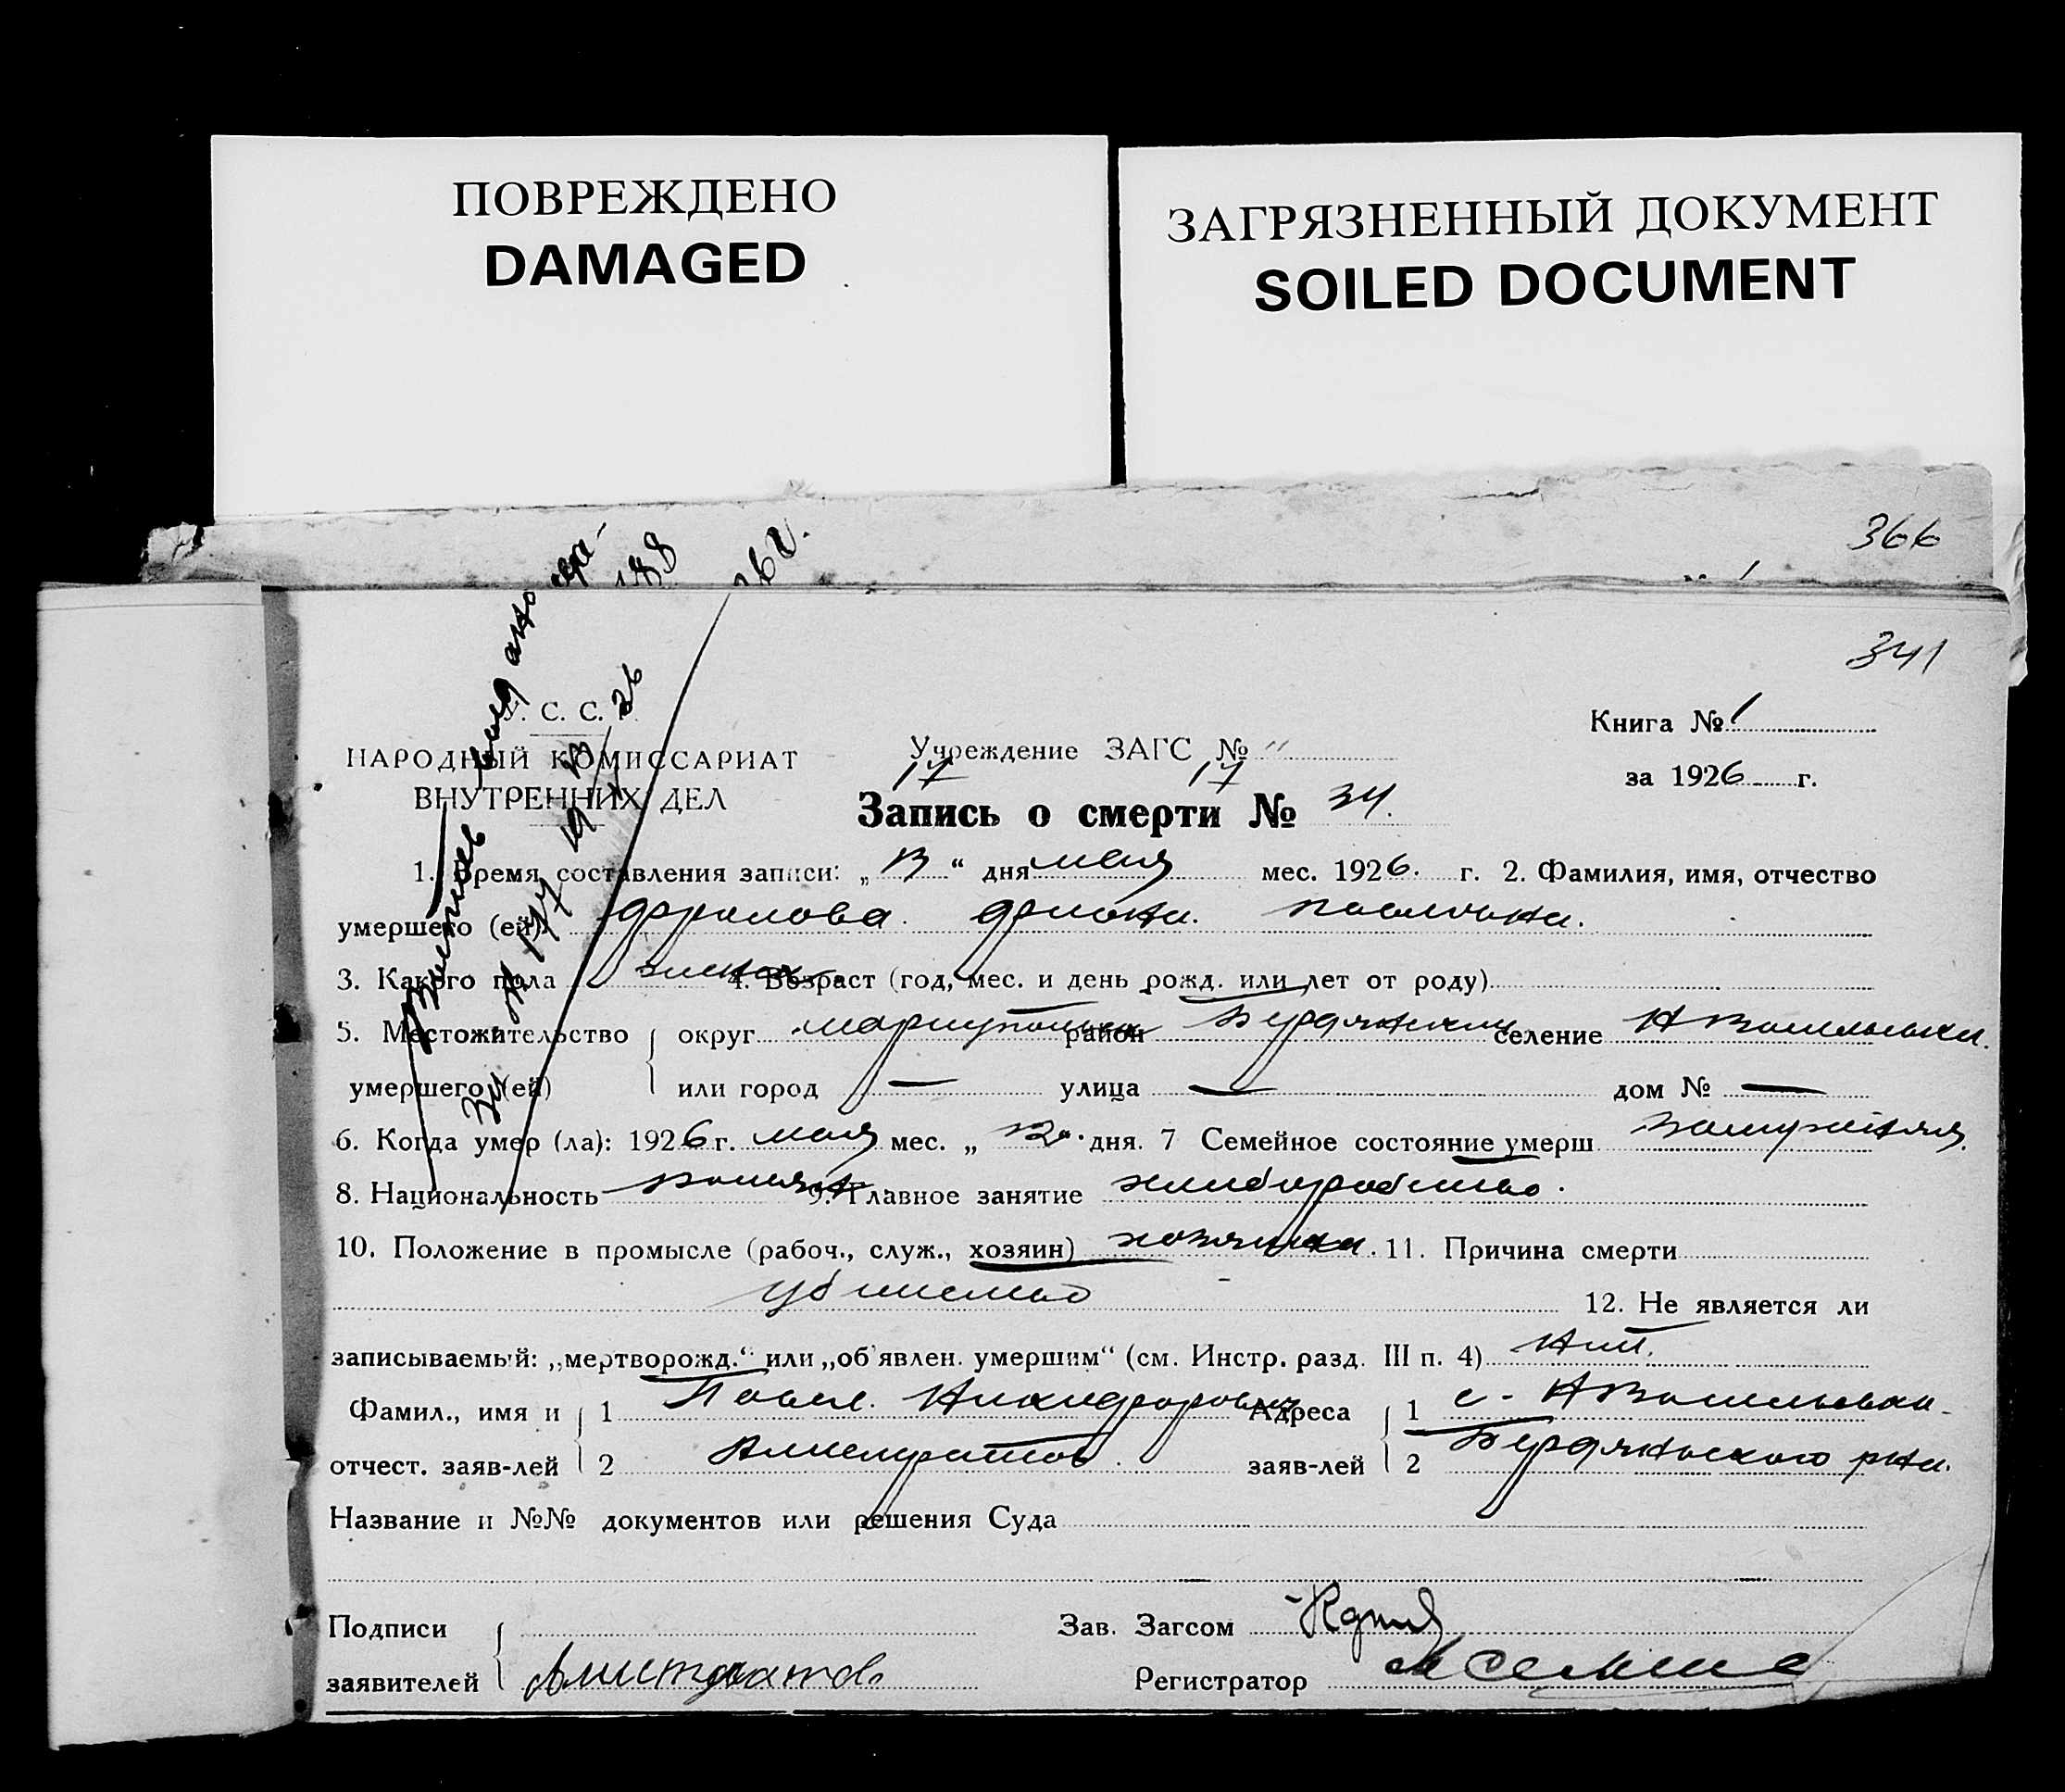 ПОВРЕЖДЕНО
DAMAGED
ЗАГРЯЗНЕННЫЙ ДОКУМЕНТ
SOILED DOCUMENT
366
341
С. С.
НАРОДНЫЙ КОМИССАРИАТ
ВНУТРЕННИХ ДЕЛ
Учреждение ЗАГС № "
Книга № 1
за 1926 г.
17 17
Запись о смерти № 34.
1. Время составления записи: „13“ дня мая мес. 1926. г. 2. Фамилия, имя, отчество
умершего (ей) Фролова
3. Какого пола женск. 4. Возраст (год, мес. и день рожд. или лет от роду)
5. Местожительство округ Мариупольск район Бердянский селение Н Васильевка.
умершего (ей) или город — улица — дом № —
6. Когда умер (ла): 1926 г. мая мес. „ дня. 7 Семейное состояние умерш Замужняя.
8. Национальность 9. Главное занятие хлеборобство.
10. Положение в промысле (рабоч., служ., хозяин) хозяйка. 11. Причина смерти
убийство 12. Не является ли
записываемый: „мертворожд.“ или „об'явлен. умершим“ (см. Инстр. разд. III п. 4) Нет.
Фамил., имя и 1 Павел. Никифорович Адреса 1 с. Н Васильевка
отчест. заяв-лей 2 заяв-лей 2 Бердянского рна.
Название и №№ документов или решения Суда
Подписи Зав. Загсом
заявителей Регистратор